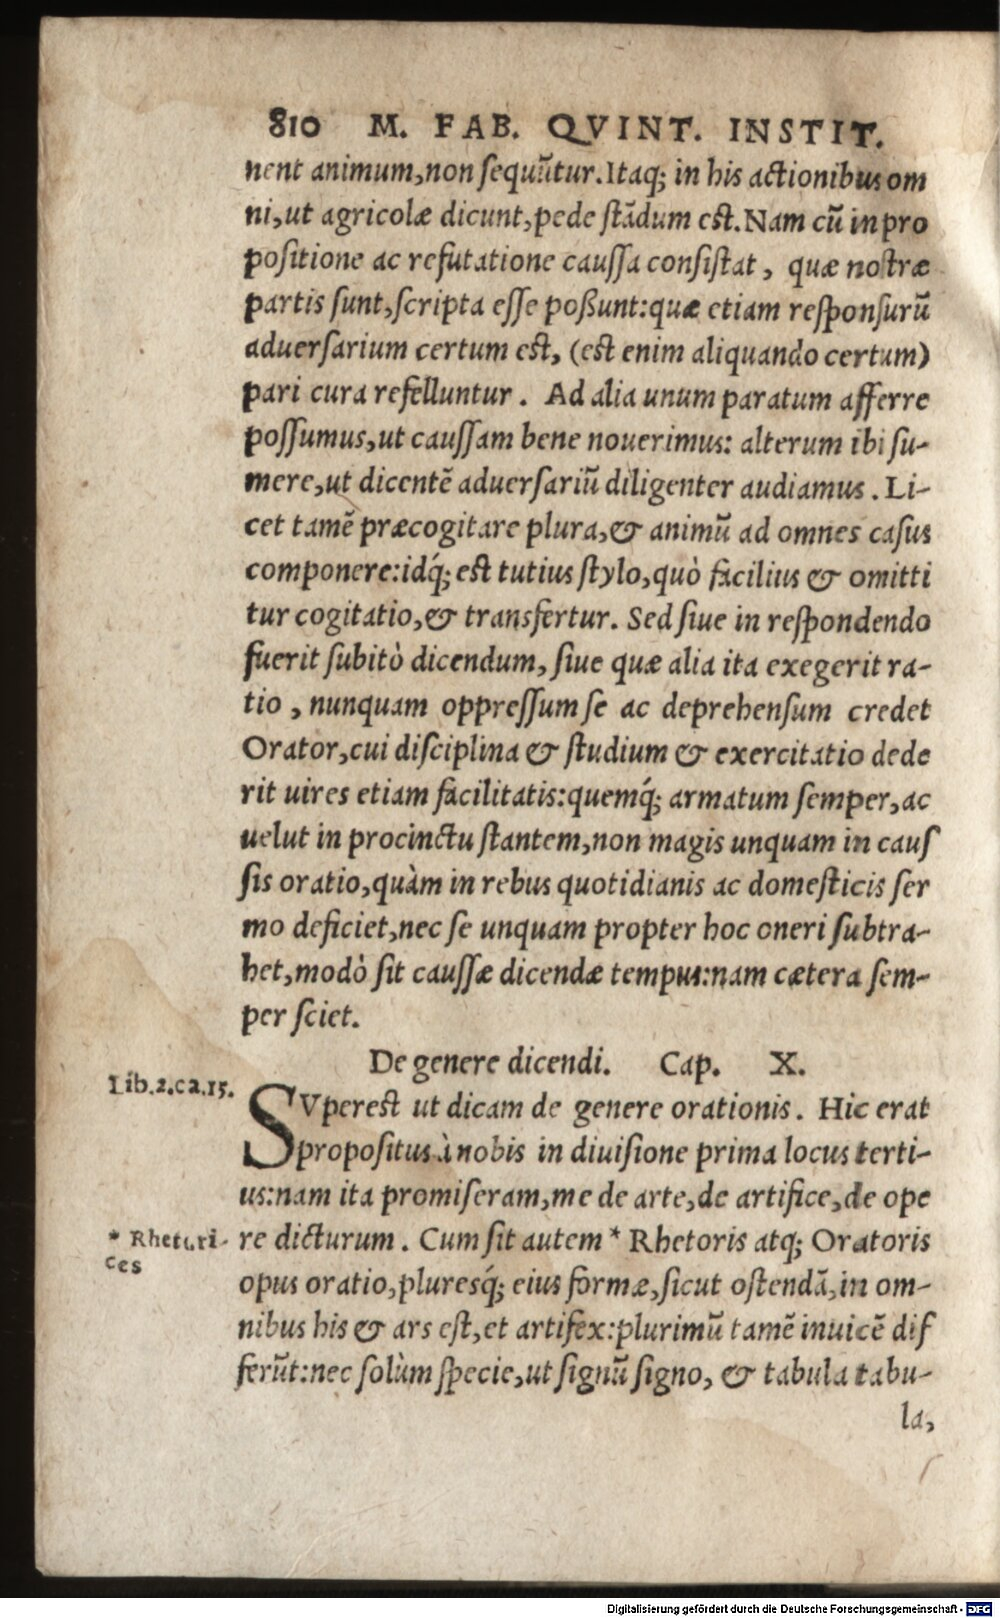 810 M. FAB. QVINT. INSTIT.
nent animum,non sequũtur.Itaq; in his actionibus om
ni,ut agricolæ dicunt,pede stãdum est.Nam cũ in pro
positione ac refutatione caussa consistat, quæ nostræ
partis sunt,scripta esse poßunt:quæ etiam responsurũ
aduersarium certum est, (est enim aliquando certum)
pari cura refelluntur. Ad alia unum paratum afferre
possumus,ut caussam bene nouerimus: alterum ibi su-
mere,ut dicentẽ aduersariũ diligenter audiamus. Li-
cet tamẽ præcogitare plura,& animũ ad omnes casus
componere:idq́; est tutius stylo,quò facilius & omitti
tur cogitatio,& transfertur. Sed siue in respondendo
fuerit subitò dicendum, siue quæ alia ita exegerit ra-
tio, nunquam oppressum se ac deprehensum credet
Orator,cui disciplina & studium & exercitatio dede
rit uires etiam facilitatis:quemq́; armatum semper,ac
uelut in procinctu stantem,non magis unquam in caus
sis oratio,quàm in rebus quotidianis ac domesticis ser
mo deficiet,nec se unquam propter hoc oneri subtra-
het,modò sit caussæ dicendæ tempus:nam cætera sem-
per sciet.
De genere dicendi. Cap. X.
Lib.2.ca.15.
SVperest ut dicam de genere orationis. Hic erat
propositus à nobis in diuisione prima locus terti-
us:nam ita promiseram,me de arte,de artifice,de ope
* Rhetori-
ces
re dicturum. Cum sit autem * Rhetoris atq; Oratoris
opus oratio,pluresq́; eius formæ,sicut ostendã,in om-
nibus his & ars est,et artifex:plurimũ tamẽ inuicẽ dif
ferũt:nec solùm specie,ut signũ signo, & tabula tabu-
la,
Digitalisierung gefördert durch die Deutsche Forschungsgemeinschaft - DFG